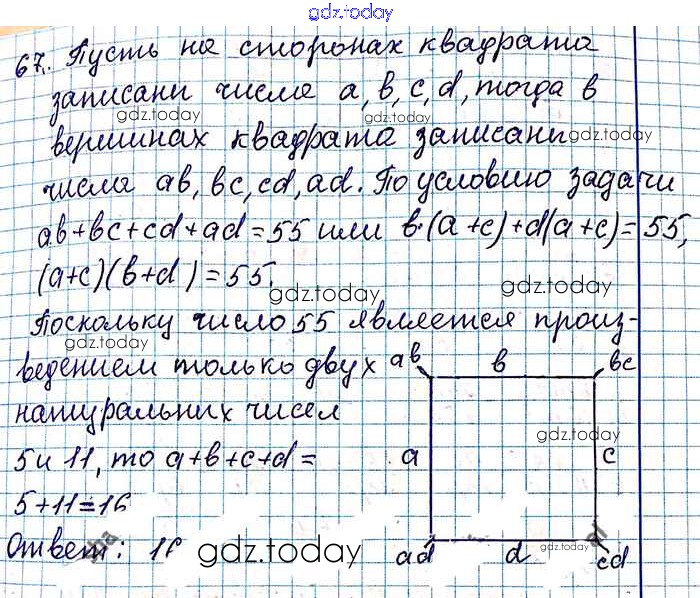 gdz.today
67. Пусть на сторонах квадрата
записани числа a, в, c, d, тогда в
gdz.today gdz.today
вершинах квадрата записани
gdz.today
числа ав, вс, cd, ad. По условию задачи
ав+вс+cd+ad=55 или в·(a+c)+d(a+c)=55,
(a+c)(в+d)=55.
gdz.today gdz.today
Поскольку число 55 является произ-
gdz.today
ведением только двух
натуральних чисел
5 и 11, то a+в+c+d=
5+11=16
Ответ: 16
ав в вс
gdz.today
a c
ad d cd
gdz.today gdz.today